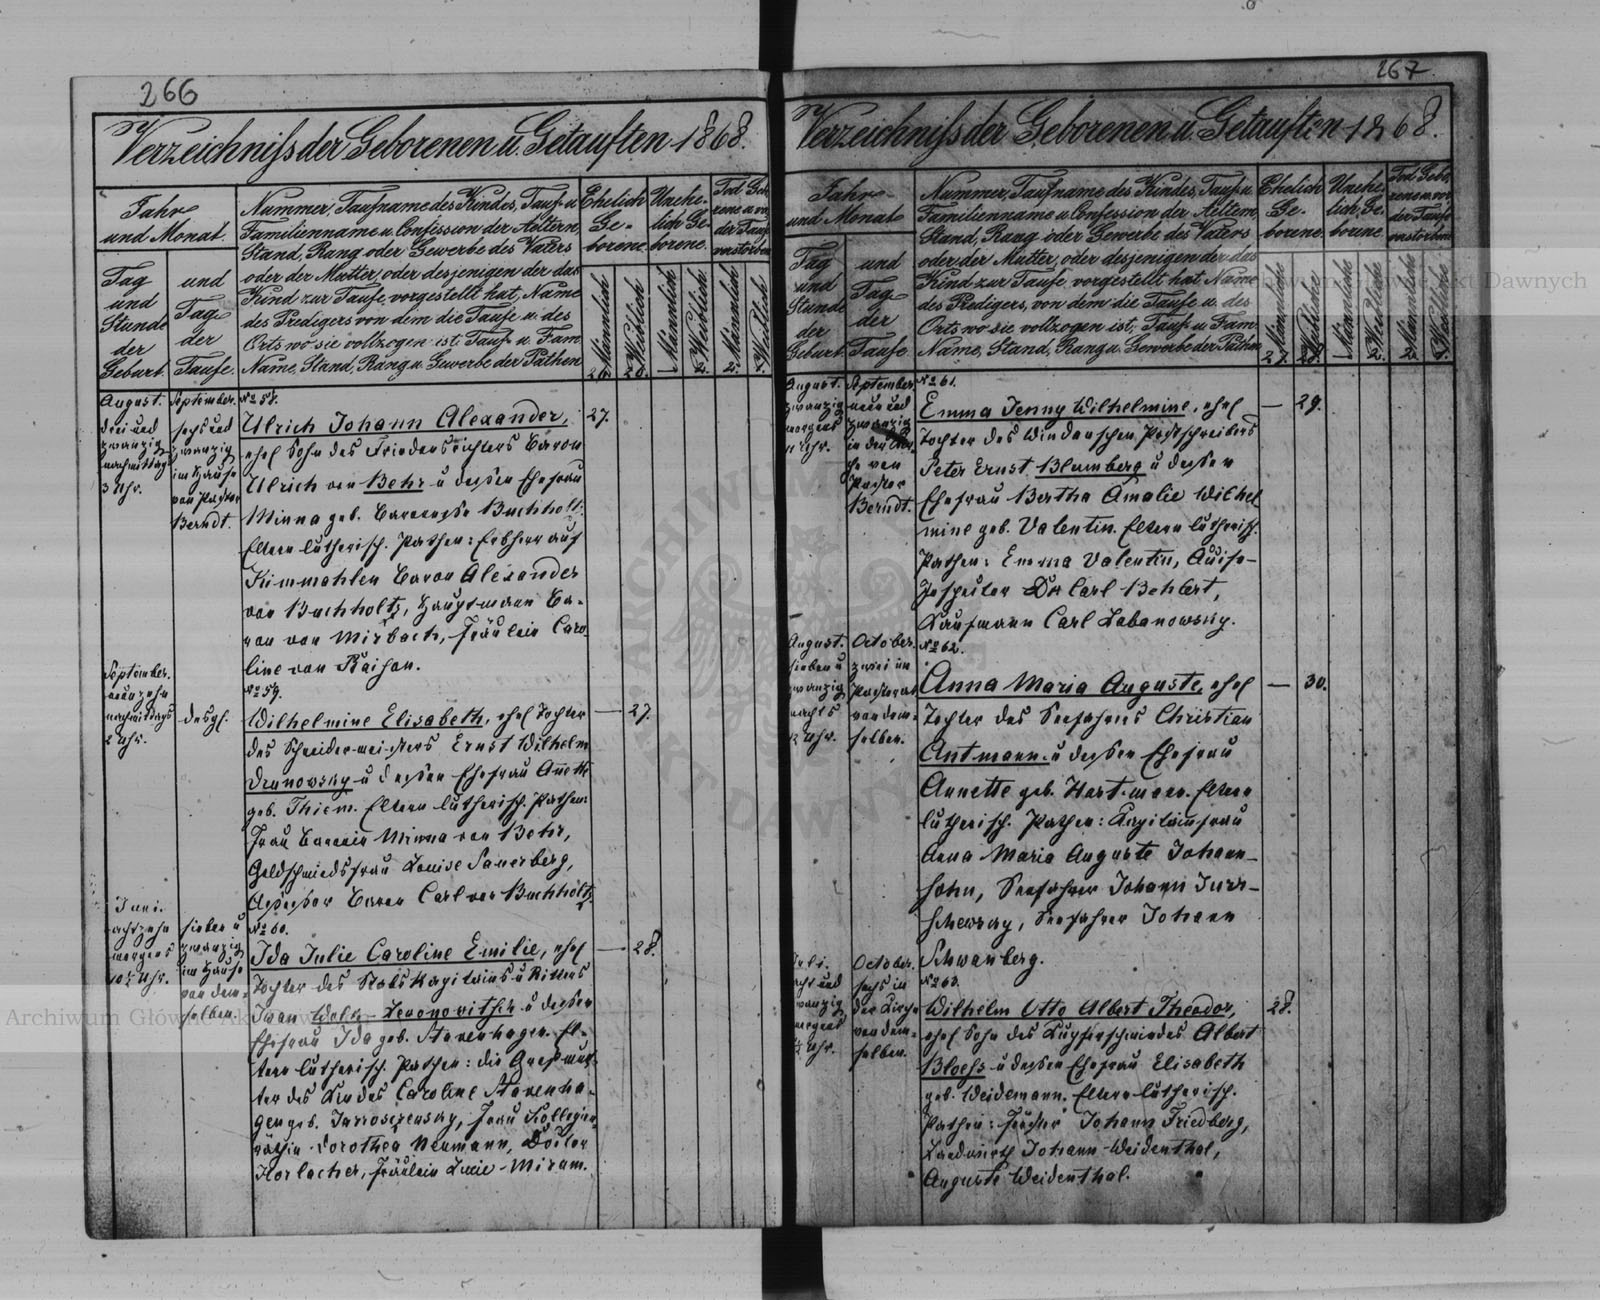 266
Verzeichniß der Geborenen u. Getauften 1868.
Jahr
und Monat.
Tag
und
Stunde
der
Geburt.
und
Tag
der
Taufe.
Nummer, Taufname des Kindes, Tauf- u.
Familienname u. Confession der Aeltern,
Stand, Rang oder Gewerbe des Vaters
oder der Mutter, oder desjenigen der das
Kind zur Taufe vorgestellt hat, Name
des Predigers von dem die Taufe u. des
Orts wo sie vollzogen ist, Tauf- u. Fam.
Name, Stand, Rang u. Gewerbe der Pathen
Ehelich
Ge-
borene.
Unehe-
lich Ge-
borene.
Tod Geb.
rene u. vor
der Taufe
verstorben
Männlich
Weiblich
Männlich
Weiblich
Männlich
Weiblich
26.
26.
1.
2.
2.
August.
drei und
zwanzig
nachmittags
3 Uhr.
September.
sechs und
zwanzig
im Hause
von Pastor
Berndt.
No 58.
Ulrich Johann Alexander,
ehel Sohn des Friedensrichters Baron
Ulrich von Behr u dessen Ehefrau
Minna geb. Baronesse Buchholtz.
Eltern lutherisch. Pathen: Erbherr auf
Kimmahlen Baron Alexander
von Buchholtz, Hauptmann Ba-
ron von Mirbach, Fräulein Caro
line von Raison.
27.
September.
neunzehn
nachmittags
2 Uhr.
desgl.
No 59.
Wilhelmine Elisabeth, ehel Tochter
des Schneidermeisters Ernst Wilhelm
Drunowsky u dessen Ehefrau Anette
geb. Thiem. Eltern lutherisch. Pathen:
Frau Baronin Minna von Behr,
Goldschmiedsfrau Louise Sauerberg,
Assessor Baron Carl von Buchholtz.
— 27.
Juni.
achtzehn
morgens
10½ Uhr.
sieben u
zwanzig
im Hause
von dem-
selben.
No 60.
Ida Julie Caroline Emilie, ehel
Tochter des Stabskapitains u Ritters
Iwan Wolk-Levonovitsch u dessen
Ehefrau Ida geb. Stavenhagen. El-
tern lutherisch. Pathen: die Grosmut-
ter des Kindes Caroline Stavenha-
gen geb. Jarroszewsky, Frau Kollegien
räthin Dorothea Neumann, Doctor
Horlacher, Fräulein Lucie Miram.
— 28.
267.
Verzeichniß der Geborenen u. Getauften 1868.
Jahr
und Monat
Tag
und
Stunde
der
Geburt.
und
Tag
der
Taufe.
Nummer, Taufname des Kindes, Tauf- u.
Familienname u. Confession der Aeltern,
Stand, Rang oder Gewerbe des Vaters
oder der Mutter, oder desjenigen der das
Kind zur Taufe vorgestellt hat, Name
des Predigers, von dem die Taufe u. des
Orts wo sie vollzogen ist, Tauf- u. Fam.
Name, Stand, Rang u. Gewerbe der Pathen
Ehelich
Ge-
borene.
Unehe-
lich Ge-
borene.
Tod Gebo
rene u. vor
der Taufe
verstorbene
Männliche
Weibliche
Männliche
Weibliche
Männliche
Weibliche
27.
28.
1.
2.
2.
1.
August.
zwanzig
morgens
11 Uhr.
September.
neun und
zwanzig
in der Kir-
che von
Pastor
Berndt.
No 61.
Emma Jenny Wilhelmine, ehel
Tochter des Windauschen Postschreibers
Peter Ernst Blumberg u dessen
Ehefrau Bertha Amalie Wilhel
mine geb. Valentin. Eltern lutherisch.
Pathen: Emma Valentin, Accise-
Inspector Carl Behlert,
Kaufmann Carl Labanowsky.
— 29.
August.
sieben u
zwanzig
nachts
12 Uhr.
October.
zwei im
Pastorat
von dem-
selben.
No 62.
Anna Maria Auguste, ehel
Tochter des Seefahrers Christian
Antmann u dessen Ehefrau
Annette geb. Hartmann. Eltern
lutherisch. Pathen: Kapitainsfrau
Anna Maria Auguste Johann-
sohn, Seefahrer Johann Jurr-
schewsky, Seefahrer Johann
Schwanberg.
— 30.
Juli.
acht und
zwanzig
morgens
October.
sechs in
der Kirche
von dem-
selben.
No 63.
Wilhelm Otto Albert Theodor,
ehel Sohn des Kupferschmiedes Albert
Bloess u dessen Ehefrau Elisabeth
geb. Weidemann. Eltern lutherisch.
Pathen: Förster Johann Friedberg,
Landwirth Johann Weidenthal,
Auguste Weidenthal.
28.
Archiwum Główne Akt Dawnych